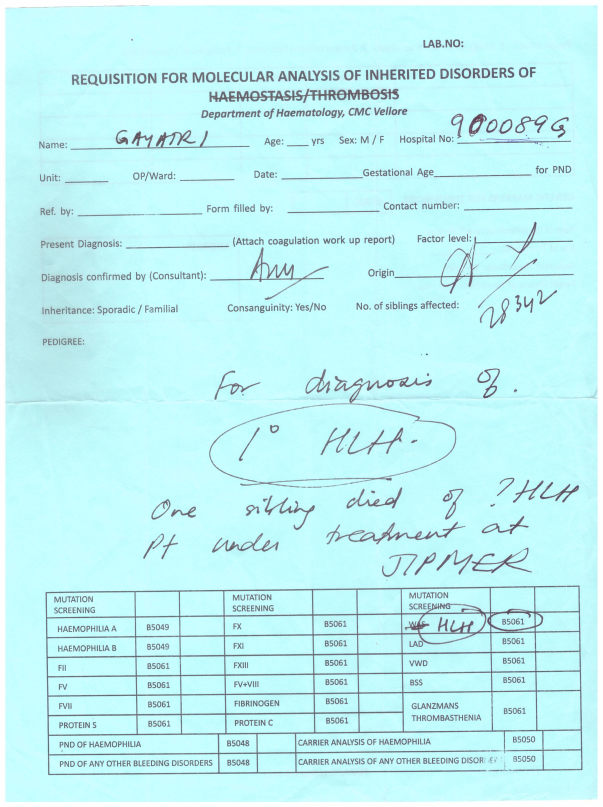 LAB.NO:
REQUISITION FOR MOLECULAR ANALYSIS OF INHERITED DISORDERS OF
HAEMOSTASIS/THROMBOSIS
Department of Haematology, CMC Vellore
Name: GAYATRI Age: ____ yrs Sex: M / F Hospital No: 900089G
Unit: ________ OP/Ward: __________ Date: _______________ Gestational Age ____________ for PND
Ref. by: ____________________ Form filled by: _______________ Contact number: _____________
Present Diagnosis: _________________ (Attach coagulation work up report) Factor level:
Diagnosis confirmed by (Consultant): Origin
Inheritance: Sporadic / Familial Consanguinity: Yes/No No. of siblings affected:
28342
PEDIGREE:
For diagnosis of.
1° HLH.
One sibling died of ?HLH
Pt under treatment at
JIPMER
MUTATION SCREENING MUTATION SCREENING MUTATION SCREENING
HAEMOPHILIA A B5049 FX B5061 HLH B5061
HAEMOPHILIA B B5049 FXI B5061 LAD B5061
FII B5061 FXIII B5061 VWD B5061
FV B5061 FV+VIII B5061 BSS B5061
FVII B5061 FIBRINOGEN B5061 GLANZMANS THROMBASTHENIA B5061
PROTEIN S B5061 PROTEIN C B5061
PND OF HAEMOPHILIA B5048 CARRIER ANALYSIS OF HAEMOPHILIA B5050
PND OF ANY OTHER BLEEDING DISORDERS B5048 CARRIER ANALYSIS OF ANY OTHER BLEEDING DISORDER B5050